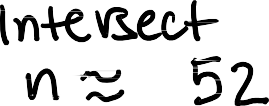 Intersect
n ≈ 52